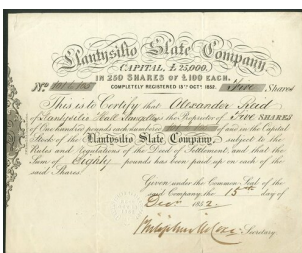 Llantysilio Slate Company
CAPITAL, £25,000,
IN 250 SHARES OF £100 EACH.
COMPLETELY REGISTERED 15TH OCTR 1852.
No Five Shares
This is to Certify that Alexander Reid
of Llantysilio Hall Llangollen is the Proprietor of Five SHARES
of One hundred pounds each numbered of and in the Capital
Stock of the Llantysilio Slate Company, subject to the
Rules and Regulations of the Deed of Settlement, and that the
Sum of Eighty pounds has been paid up on each of the
said Shares.
Given under the Common Seal of the
said Company, the 15th day of
Decr 1852.
Secretary